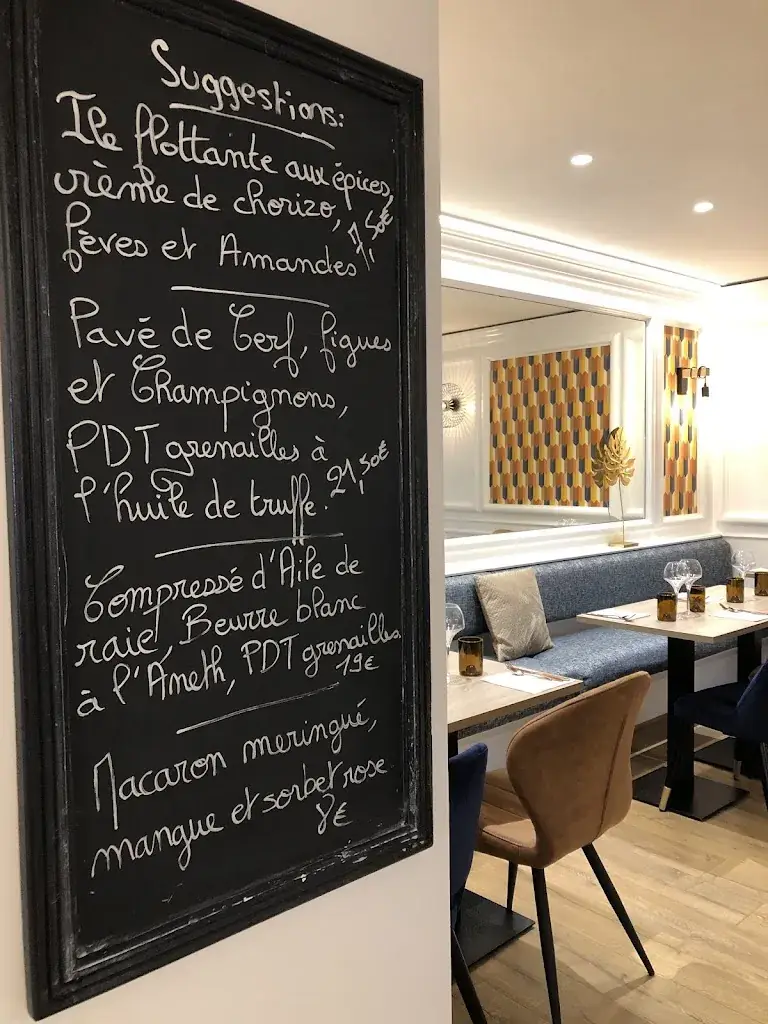 Suggestions:
Ile flottante aux épices,
crème de chorizo,
fèves et Amandes 7,50€
Pavé de Cerf, figues
et Champignons,
PDT grenailles à
l'huile de truffe. 21,50€
Compressé d'Aile de
raie, Beurre blanc
à l'Aneth, PDT grenailles.
19€
Macaron meringué,
mangue et sorbet rose
8€